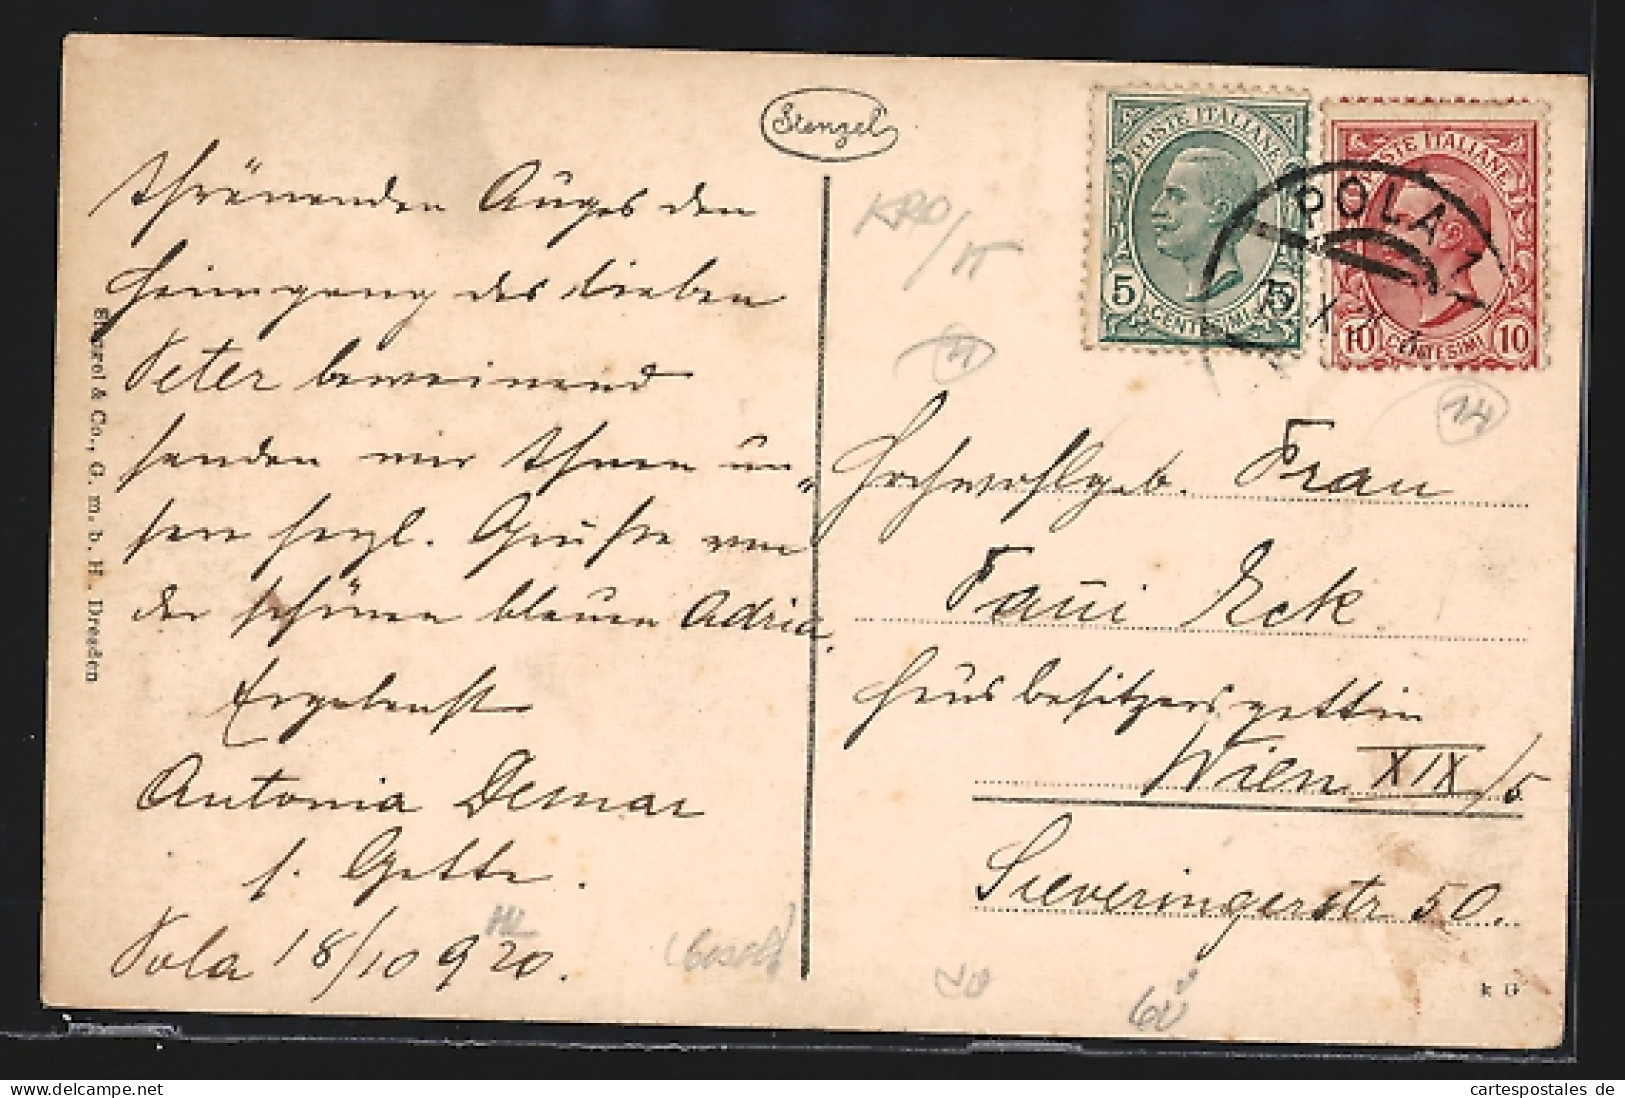 Stenzel
thränenden Auges den
Heimgang des lieben
Peter beweinend
senden wir Ihnen un-
sere herzl. Grüße von
der schönen blauen Adria.
Ergebenst
Antonia Demar
s. Gatte.
Pola 18/10 920.
Stengel & Co., G. m. b. H. Dresden
POSTE ITALIANE
5 CENTESIMI 5
POSTE ITALIANE
10 CENTESIMI 10
POLA 1
Hochwohlgeb. Frau
Fauii Eck
Hausbesitzersgattin
Wien XIX/5
Sieveringerstr 50.
KRO/
14
60
k G
delcampe.net
cartespostales de